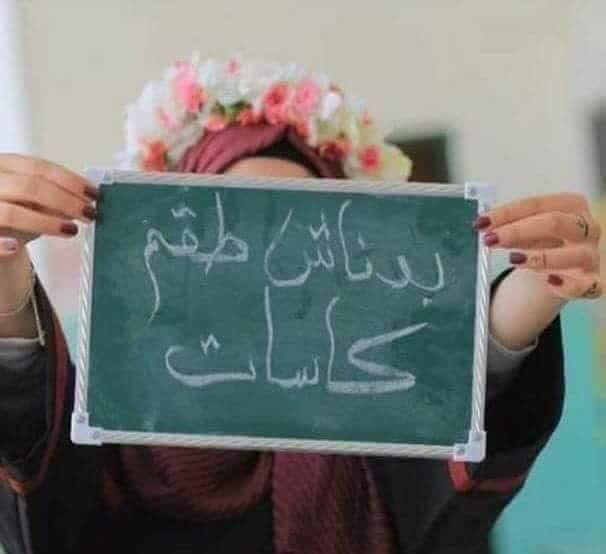 بدناش طقم
كاسات